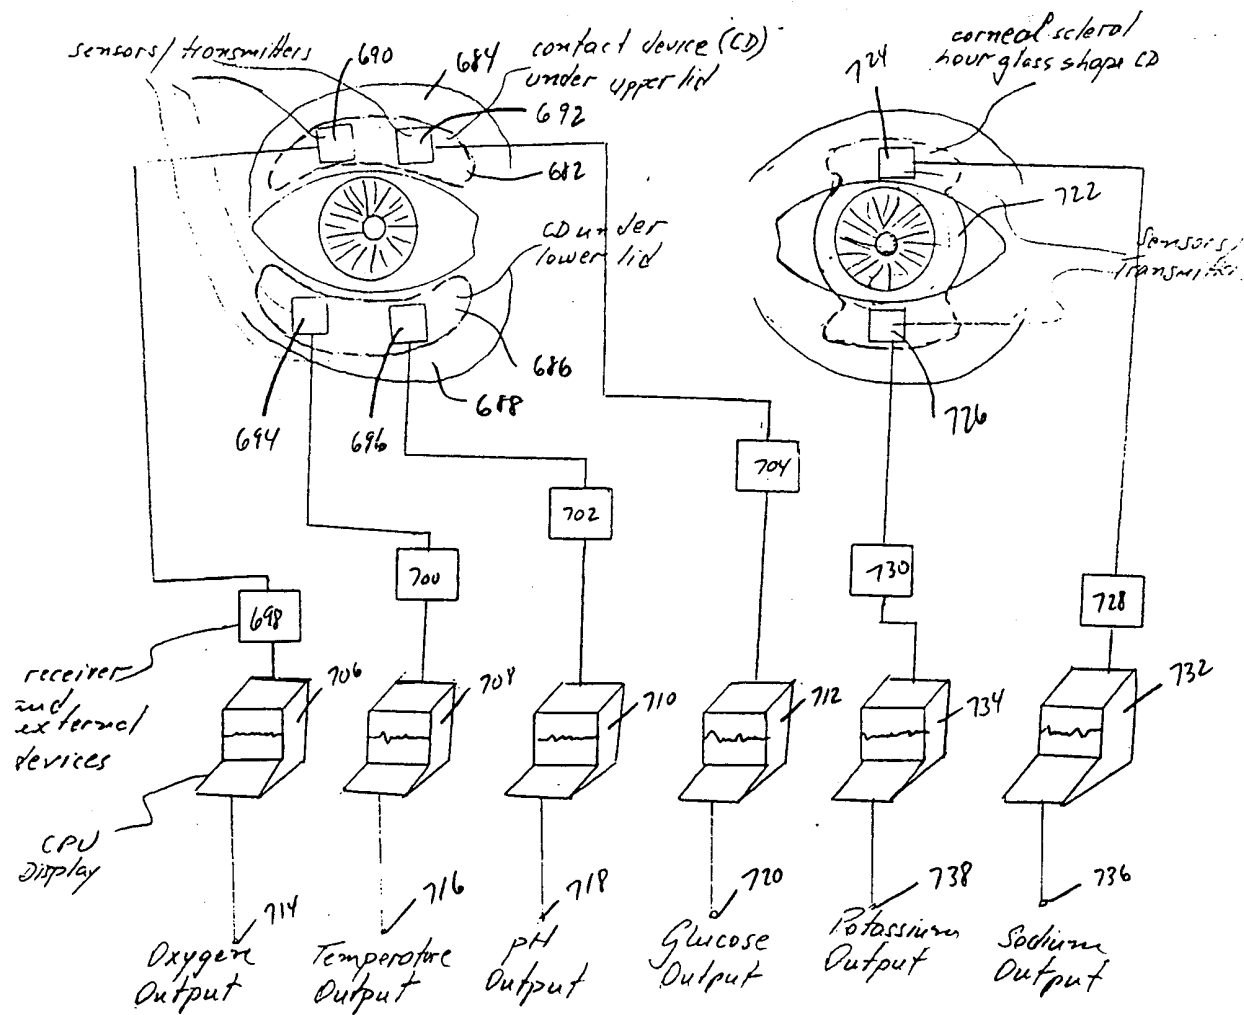 sensors/transmitters
690
684
contact device (CD)
under upper lid
692
682
CD under
lower lid
686
688
694
696
724
corneal scleral
hour glass shape CD
722
sensors/
726
704
702
700
698
730
728
receiver
and
external
devices
706
708
710
712
734
732
CPU
Display
714
716
718
720
738
736
Oxygen
Output
Temperature
Output
pH
Output
Glucose
Output
Potassium
Output
Sodium
Output